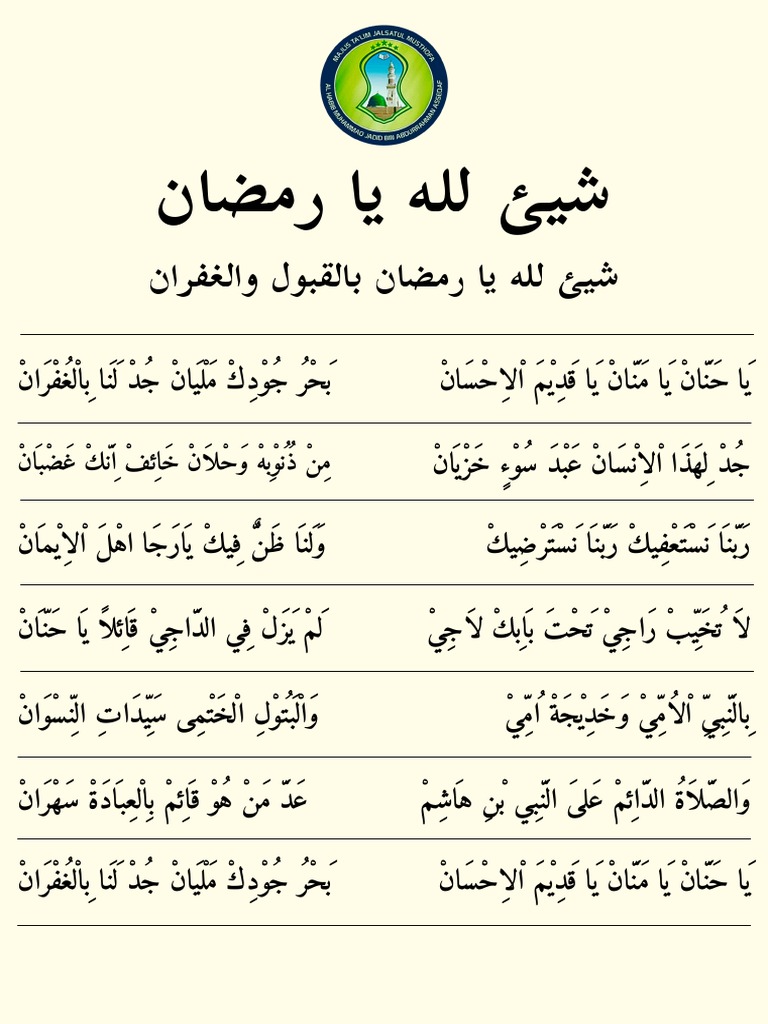 MAJLIS TA'LIM JALSATUL MUSTHOFA
AL HABIB MUHAMMAD JADID BIN ABDURRAHMAN ASSEGAF
شيئ لله يا رمضان
شيئ لله يا رمضان بالقبول والغفران
يَا حَنَّانْ يَا مَنَّانْ يَا قَدِيْمَ اْلاِحْسَانْ بَحْرُ جُوْدِكْ مَلْيَانْ جُدْ لَنَا بِاْلغُفْرَانْ
جُدْ لِهَذَا اْلاِنْسَانْ عَبْدَ سُوْءٍ خَزْيَانْ مِنْ ذُنُوْبِهْ وَحْلَانْ خَائِفْ اِنَّكْ غَضْبَانْ
رَبَّنَا نَسْتَعْفِيكْ رَبَّنَا نَسْتَرْضِيكْ وَلَنَا ظَنٌّ فِيكْ يَارَجَا اهْلَ اْلاِيْمَانْ
لاَ تُخَيِّبْ رَاجِيْ تَحْتَ بَابِكْ لاَجِيْ لَمْ يَزَلْ فِي الدَّاجِيْ قَائِلاً يَا حَنَّانْ
بِالنَّبِيِّ اْلاُمِّيْ وَخَدِيْجَةْ اُمِّيْ وَاْلبَتُوْلِ اْلخَتْمِى سَيِّدَاتِ النِّسْوَانْ
وَالصَّلَاةُ الدَّائِمْ عَلىَ النَّبِي بْنِ هَاشِمْ عَدَّ مَنْ هُوْ قَائِمْ بِاْلعِبَادَةْ سَهْرَانْ
يَا حَنَّانْ يَا مَنَّانْ يَا قَدِيْمَ اْلاِحْسَانْ بَحْرُ جُوْدِكْ مَلْيَانْ جُدْ لَنَا بِاْلغُفْرَانْ